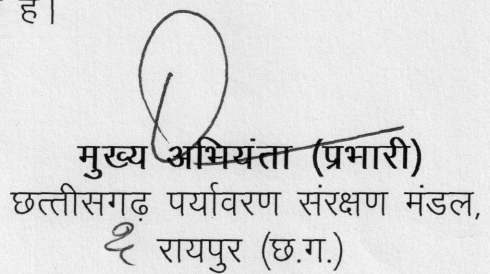 है।
मुख्य अभियंता (प्रभारी)
छत्तीसगढ़ पर्यावरण संरक्षण मंडल,
रायपुर (छ.ग.)